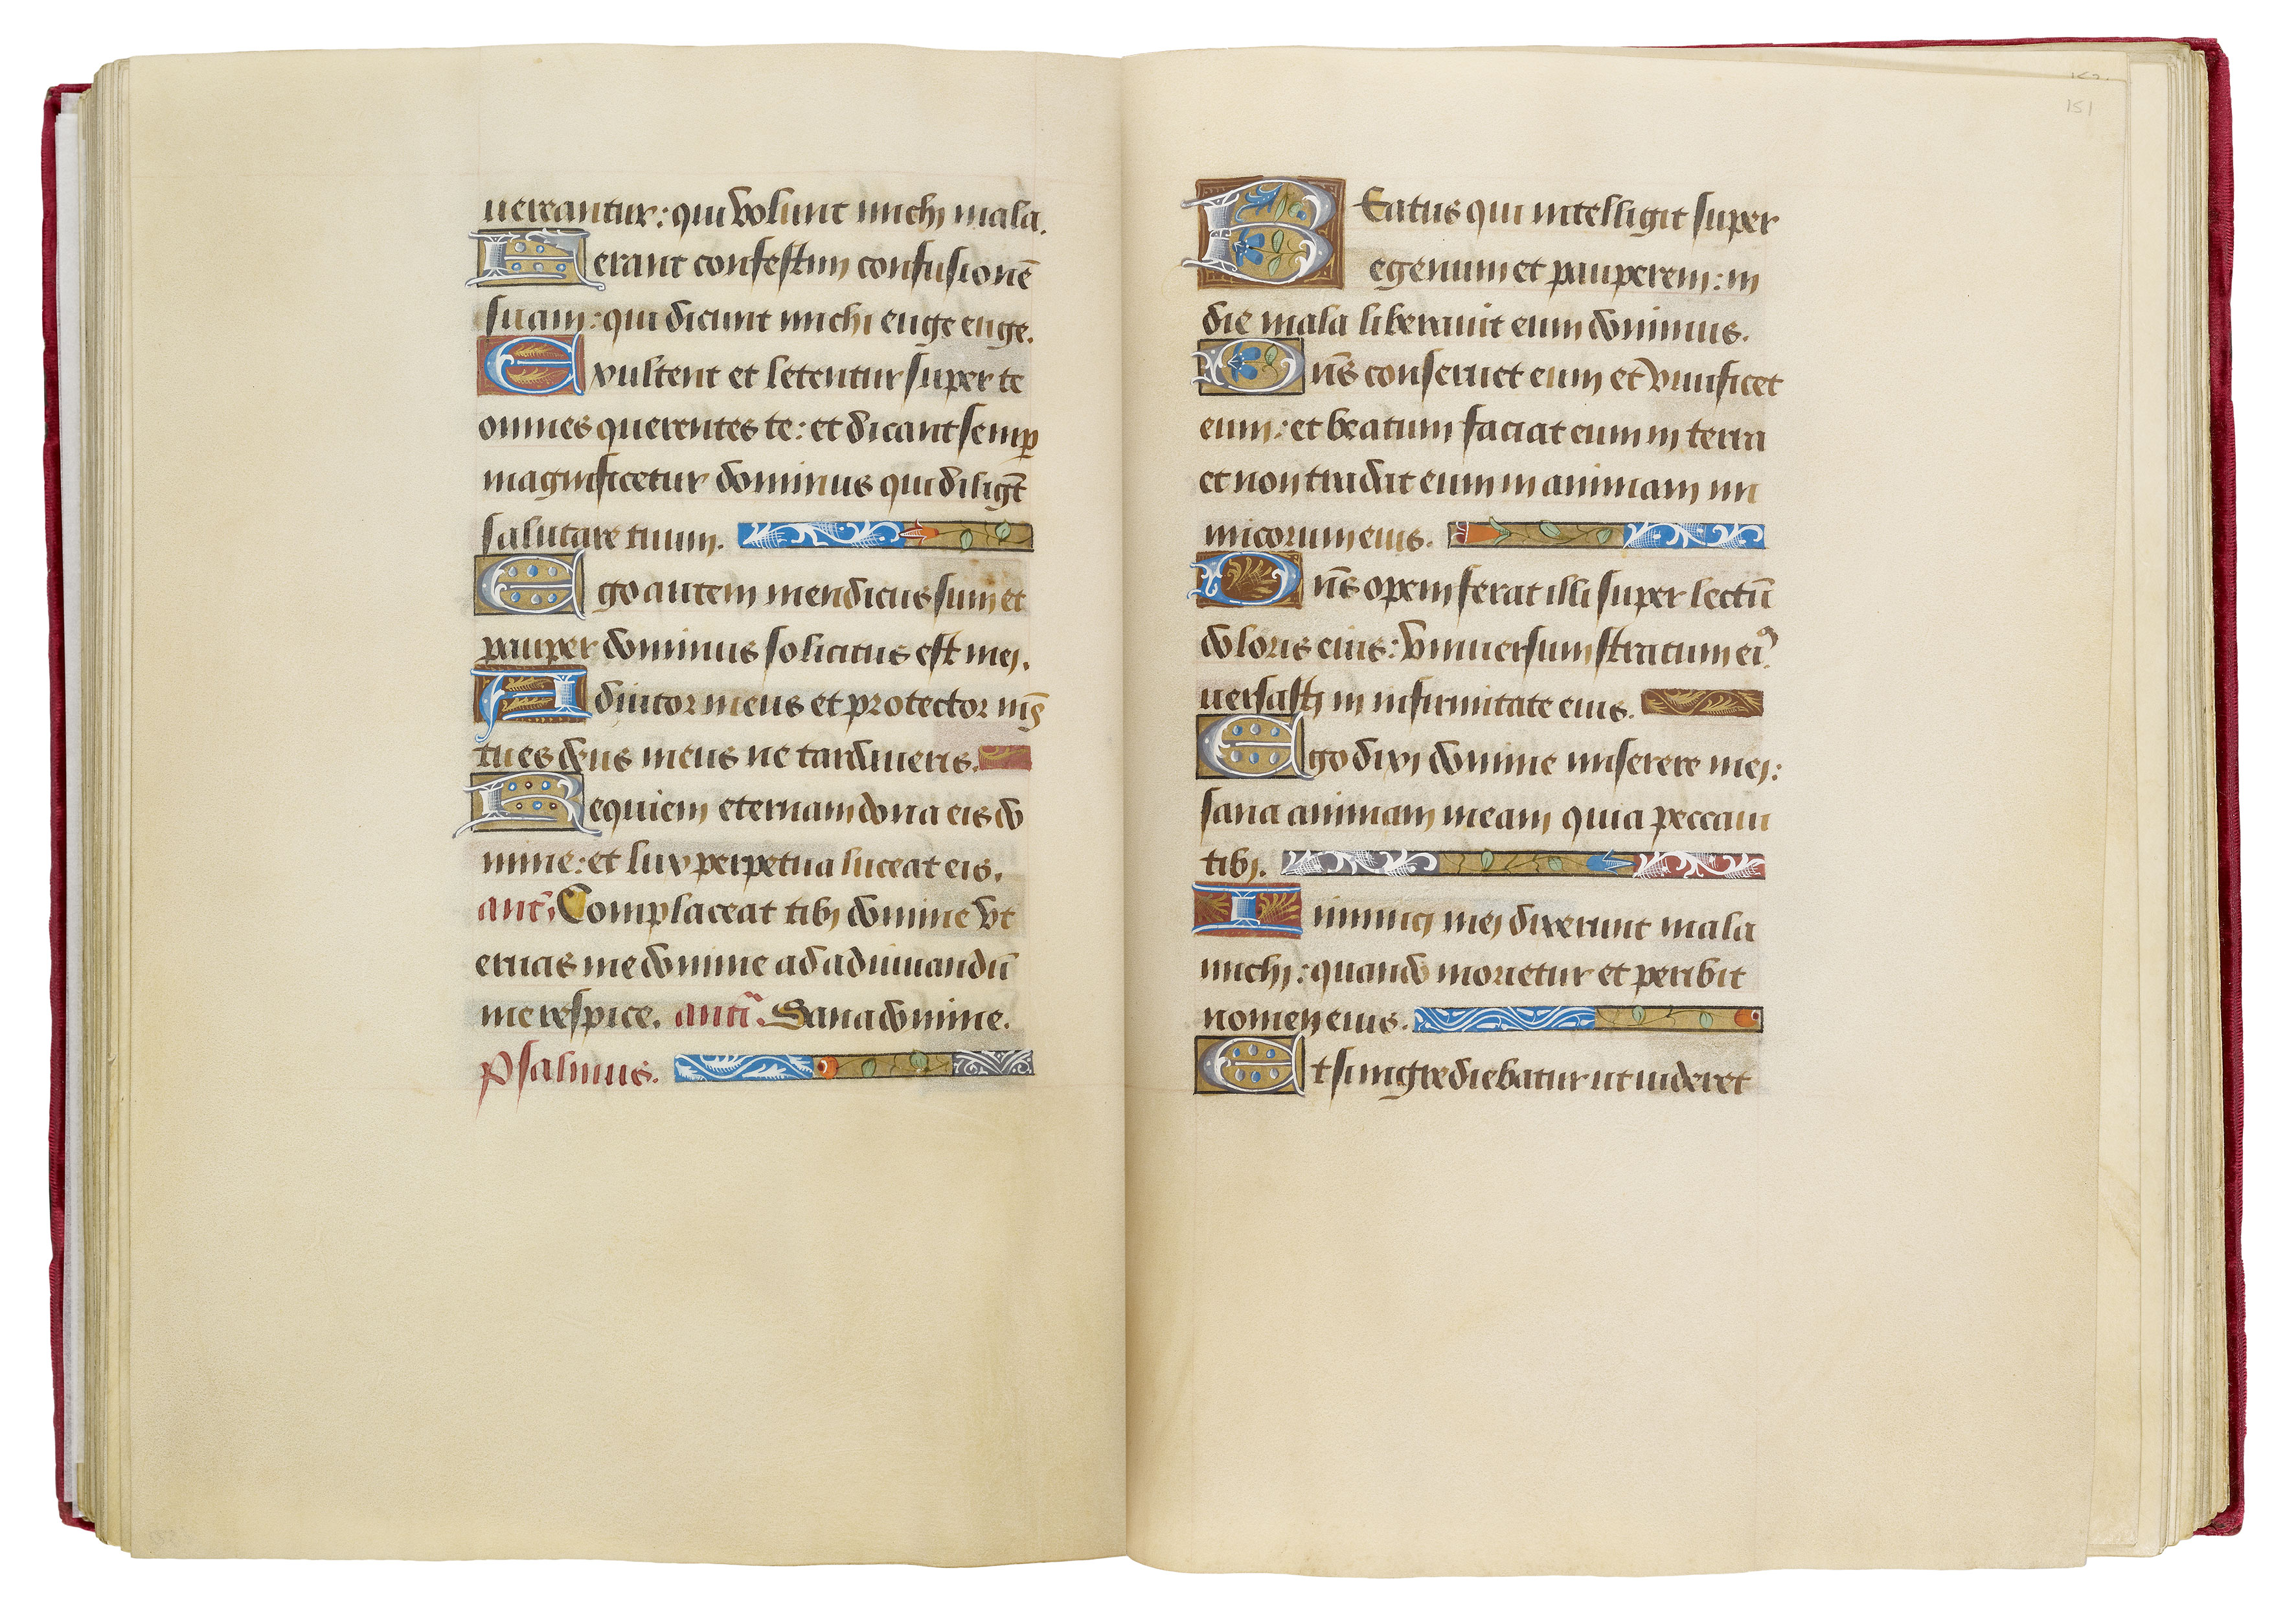 uereantur: qui volunt michi mala.
Ferant confestim confusionē
suam: qui dicunt michi euge euge.
Exultent et letentur super te
omnes querentes te: et dicant semꝑ
magnificetur dominus qui diligūt
salutare tuum.
Ego autem mendicus sum et
pauper dominus solicitus est mei.
Adiutor meus et protector mꝰ
tu es deus meus ne tardaueris.
Requiem eternam dona eis do
mine: et lux perpetua luceat eis.
ant. Complaceat tibi domine vt
eruas me domine ad adiuuandū
me respice. anti. Sana domine.
Psalmus.
152.
151
BEatus qui intelligit super
egenum et pauperem: in
die mala liberauit eum dominus.
Dn̄s conseruet eum et viuificet
eum: et beatum faciat eum in terra
et non tradat eum in animam ini
micorum eius.
Dn̄s opem ferat illi super lectū
doloris eius: vniuersum stratum eiꝰ
uersasti in infirmitate eius.
Ego dixi domine miserere mei:
sana animam meam quia peccaui
tibi.
Inimici mei dixerunt mala
michi: quando morietur et peribit
nomen eius.
Et si ingrediebatur ut uideret